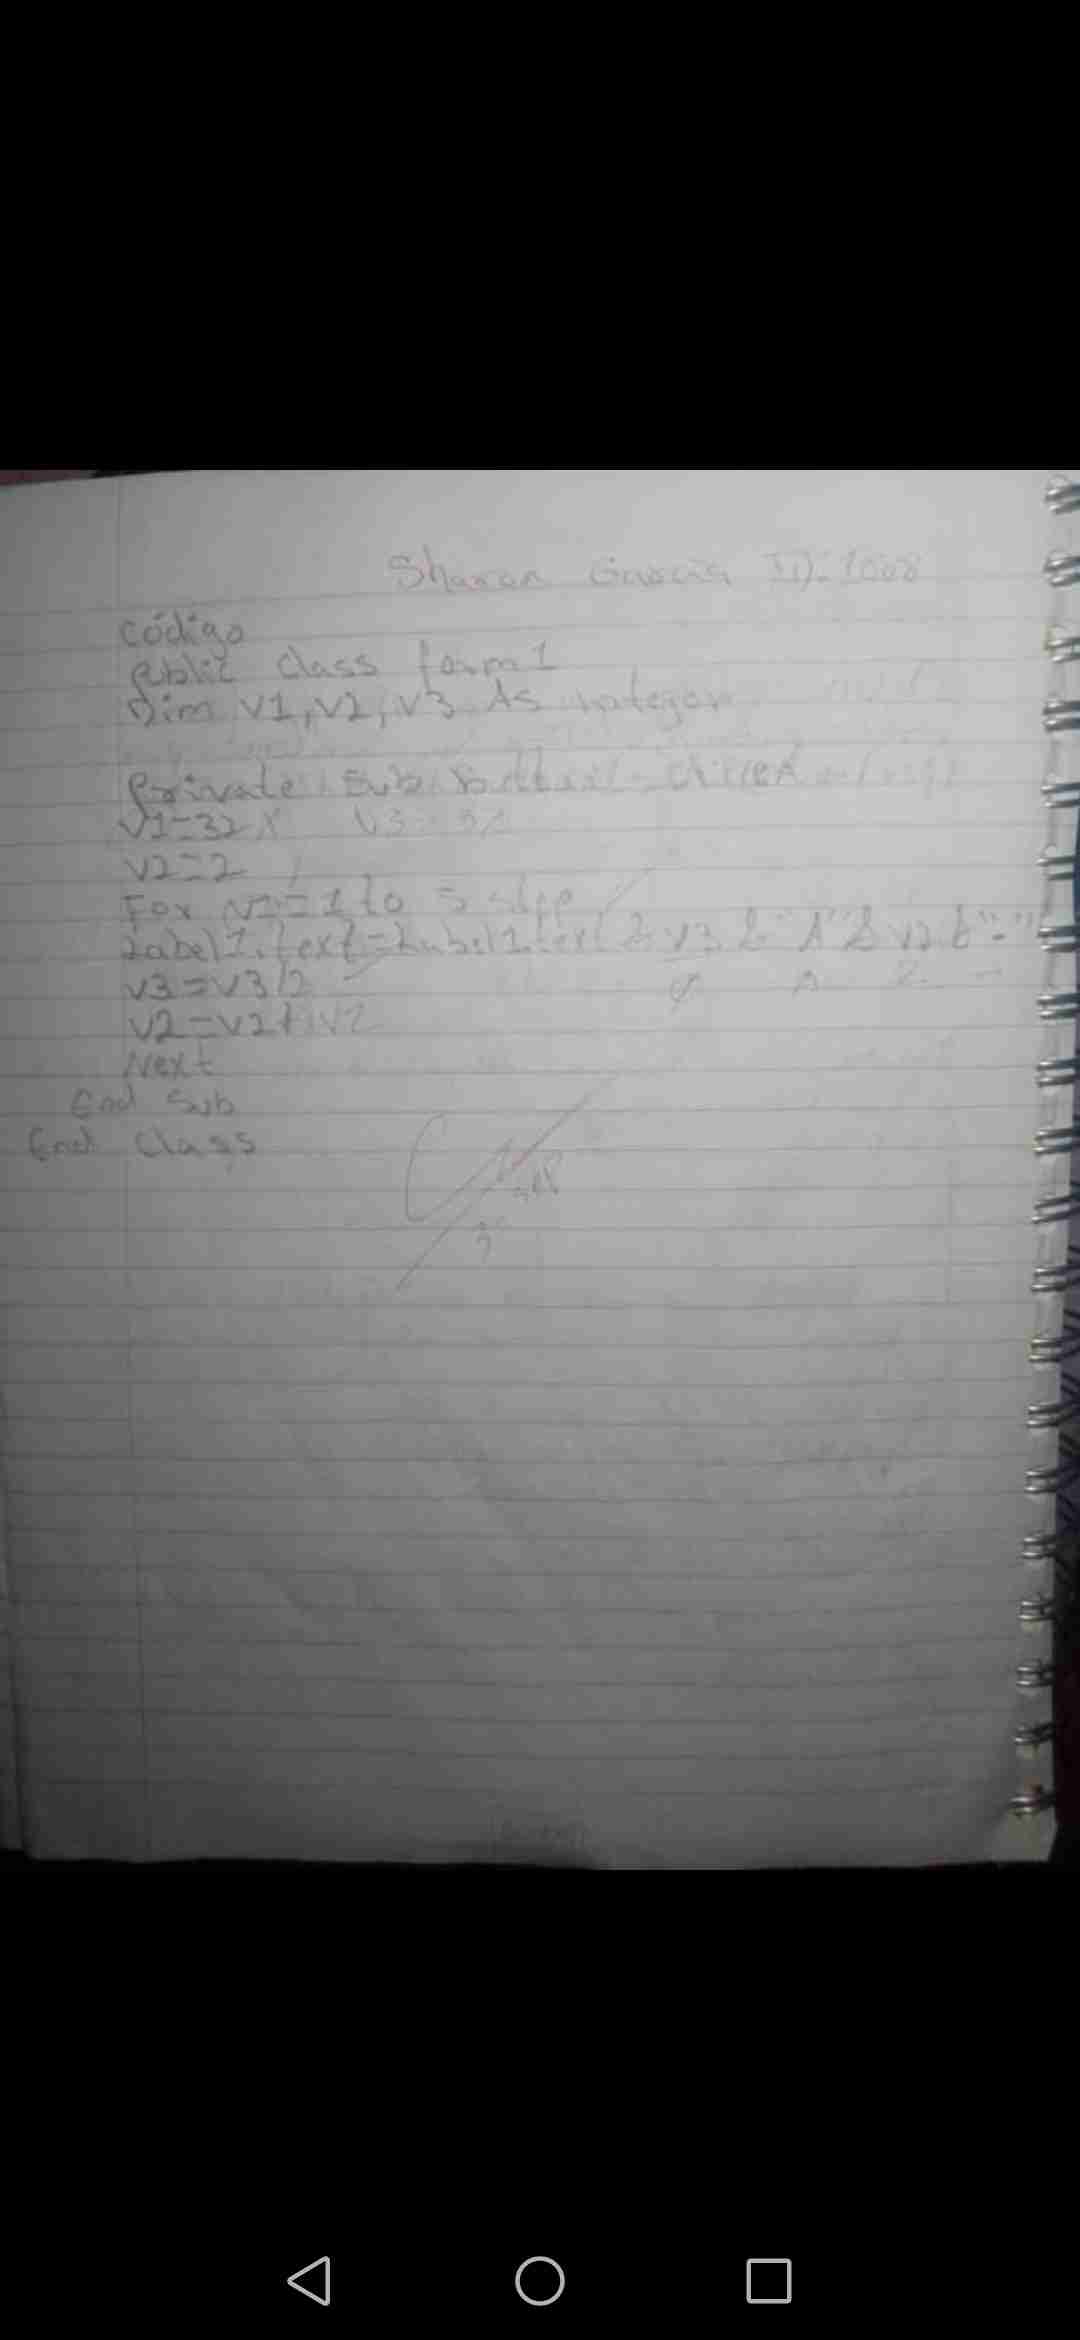 Sharon Garcia ID:1008
código
public class form1
Dim V1,V2,V3 As integer
Private Sub Button1-Clicked
V1=32 X V3=32
V2=2
For V1=1 to 5 step
Label1.text=Label1.text & V3 & "A" & V2 & "-"
A 2 -
V3=V3/2
V2=V2+V2
Next
End Sub
End Class